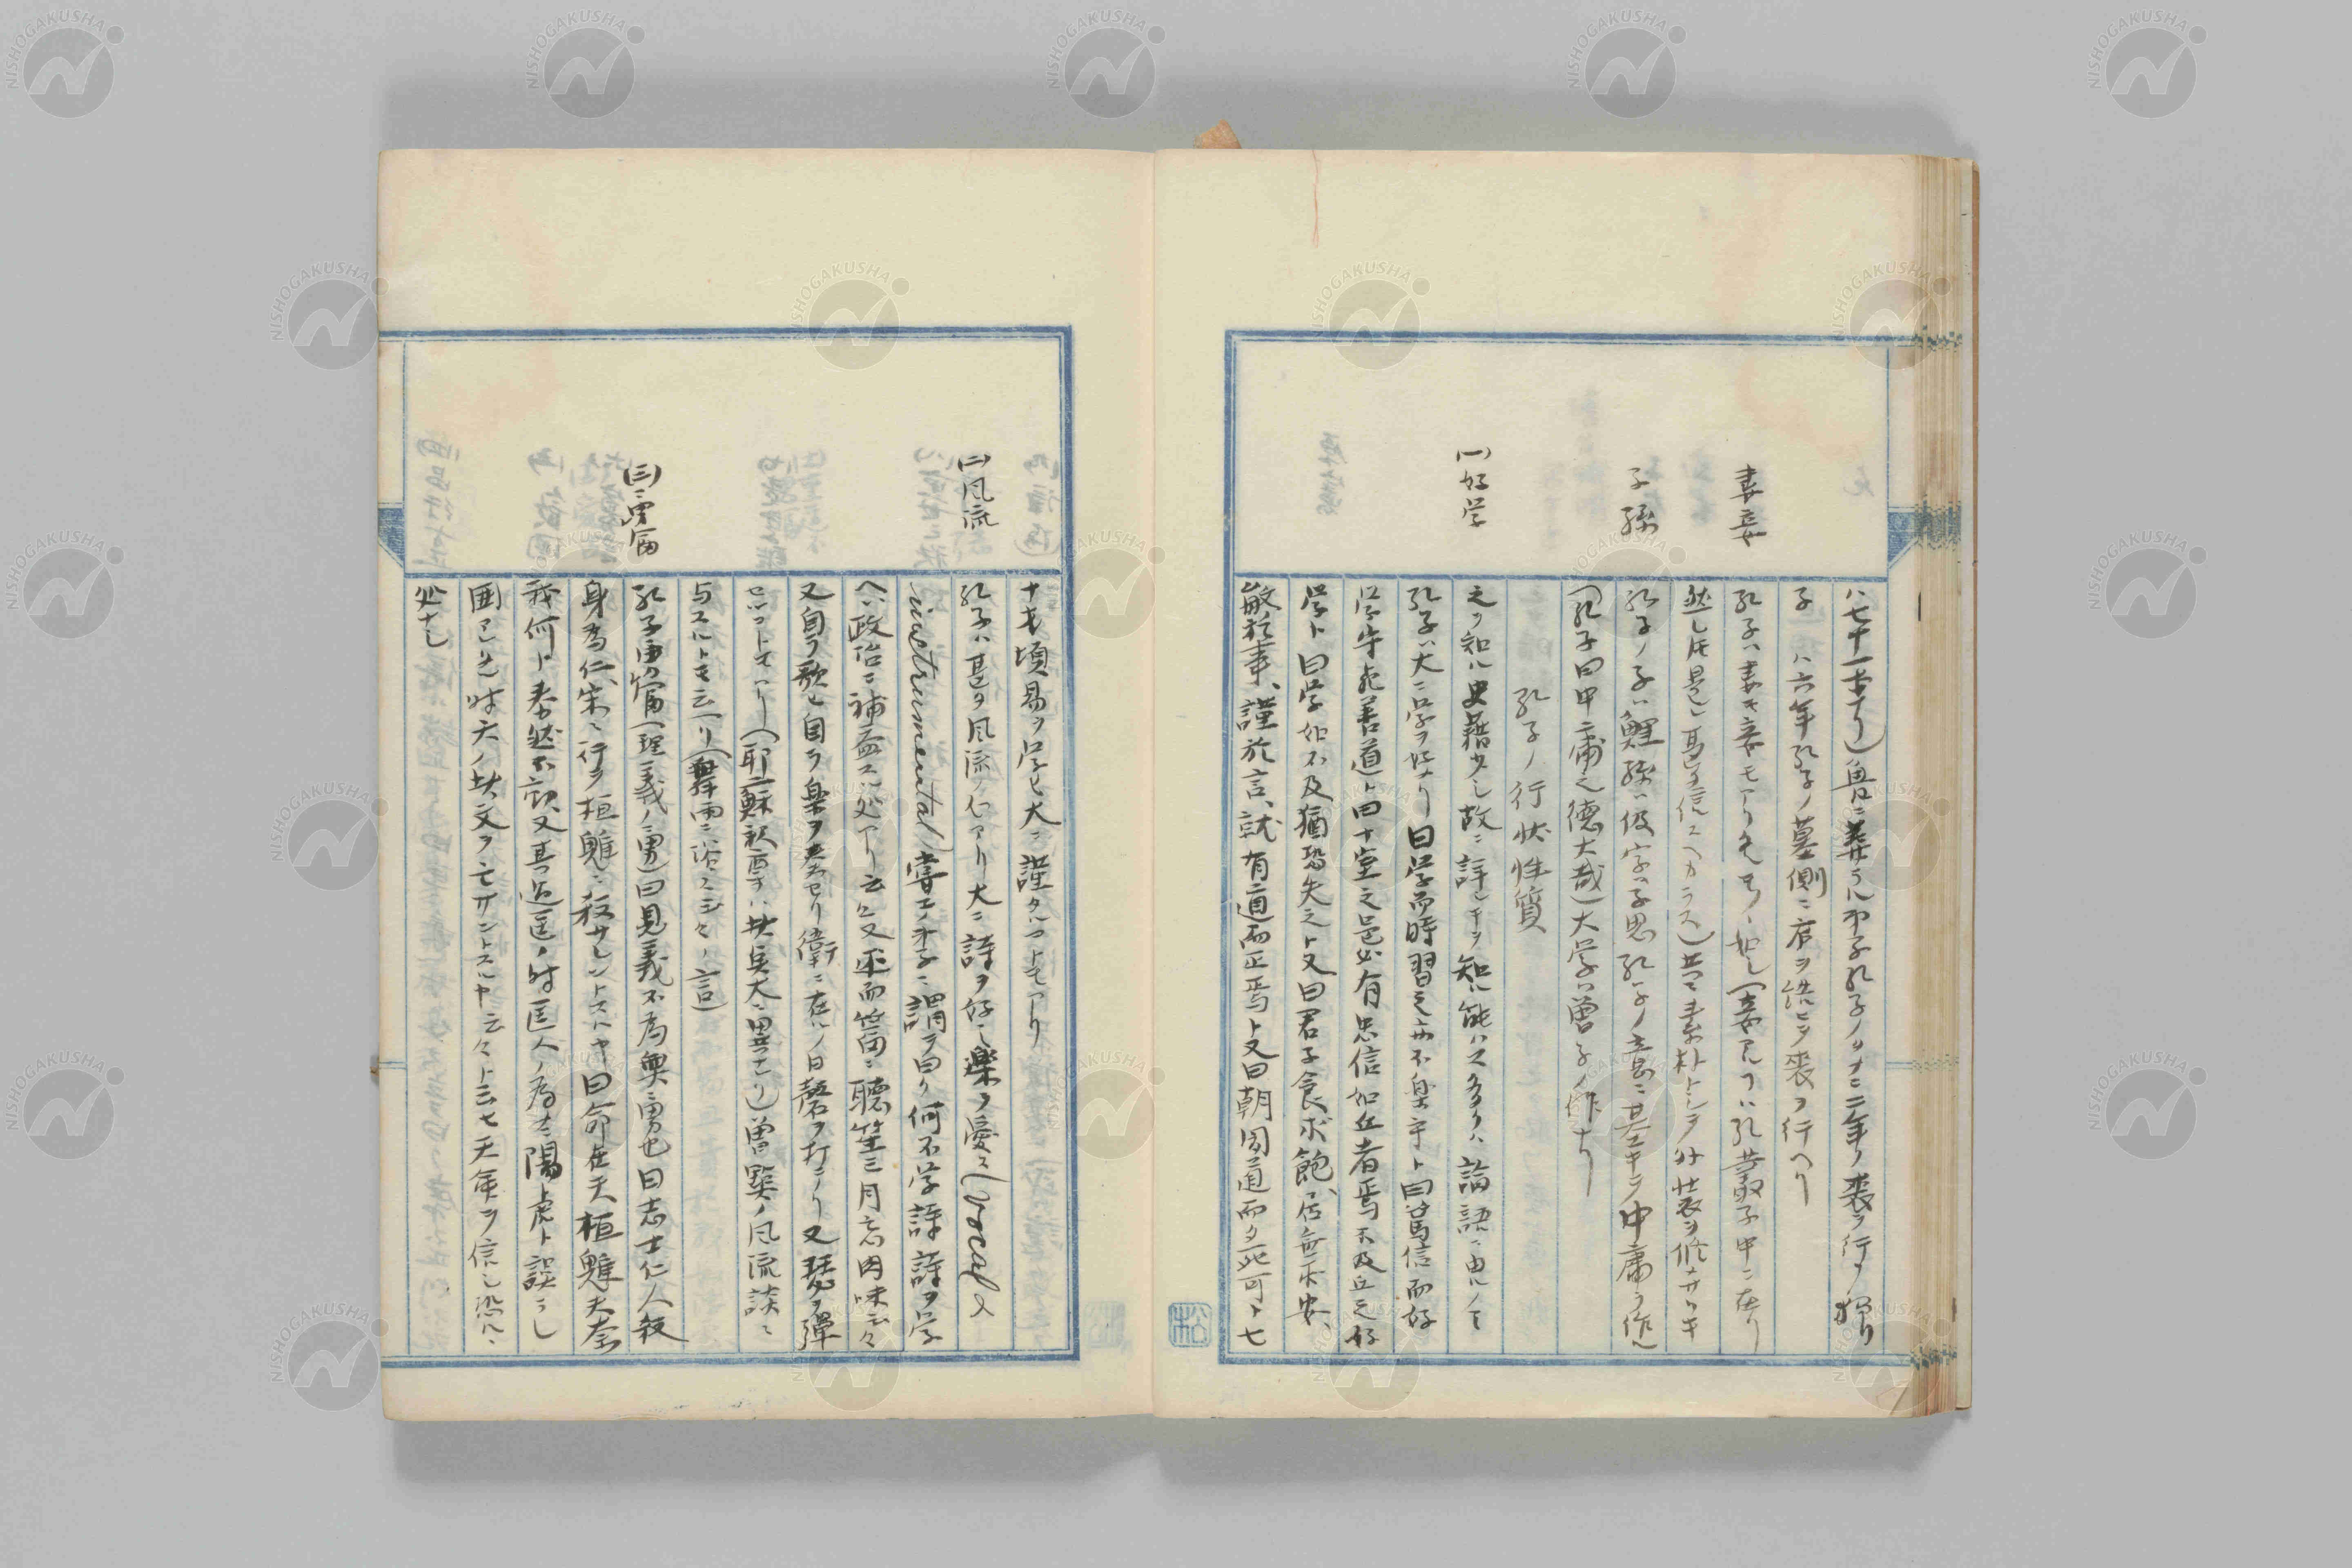 妻妾
子孫
(一)好学
八七十一才ナリ)魯ニ葬ラル弟子孔子ノタメニ三年ノ喪ヲ行フ獨リ
子 ハ六年孔子ノ墓側ニ店ヲ結ビテ喪ヲ行ヘリ
孔子ハ妻モ妾モアリタモノヽ如シ(妾アルヿハ孔叢子中ニ在リ
然シ𪜈是レ高等信スヘカラス)共ニ素朴トシテ外装ヲ修メサルキ
孔子ノ子ハ鯉孫ハ伋字ハ子思孔子ノ意ニ基キテ中庸ヲ作ル
(孔子曰中庸之德大哉)大学ハ曽子ノ作ナリ
孔子ノ行状性質
之ヲ知ル史籍少シ故ニ詳シキヲ知ル能ハス多クハ論語ニ由ルノミ
孔子ハ大ニ学ヲ好メリ曰学而時習之亦不楽乎ト曰篤信而好
学守死善道ト曰十室之邑必有忠信如丘者焉不及丘之好
学ト曰学如不及猶恐失之ト又曰君子食求飽、居無求安、
敏於事、謹於言、就有道而正焉ト又曰朝聞道而夕死可ト七
(二)風流
(三)勇富
十才頃易ヲ学ヒ大ニ謹タルヿトモアリ
孔子ハ甚タ風流ノ仁アリ大ニ詩ヲ好ミ楽ヲ愛ス(Vocal 又
instrumental)嘗テ弟子ニ謂ヲ曰ク何不学詩詩ヲ学
ヘハ政治ニ補益スル処アリ云々又 而 ニ聴笙三月忘肉味云々
又自ラ歌ヒ自ラ楽ヲ奏セリ衛ニ在ルノ日磬ヲ打テリ又瑟ヲ彈
セルヿトモアリ(耶蘇釈尊ハ其奥大ニ異ナリ)曽點ノ風流談ニ
与スルトモ云ヘリ(舞雨ニ浴スミ々ノ言)
孔子勇富(理義ノ勇)曰見義不為無勇也曰志士仁人殺
身為仁、宋ニ行テ桓魋ニ殺サレントスルヤ曰命在天桓魋夫奈
我何ト泰然不顧、又其過匡ノ時匡人ノ為ニ陽虎ト誤ラレ
囲マレシ時六ノ其文ヲ亡サントスルヤ云々ト云ヒ天命ヲ信シ恐ルヽ
処ナシ
松
NISHOGAKUSHA